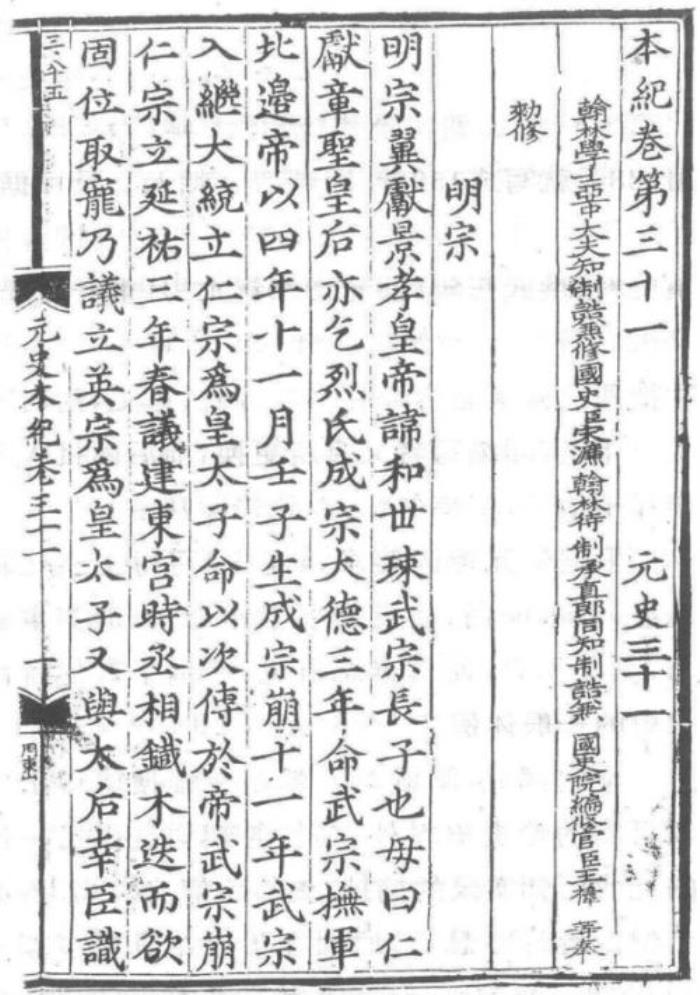 本紀卷第三十一 元史三十一
翰林學士亞中大夫知制誥兼修國史臣宋濂翰林待制承直郎同知制誥兼國史院編修官臣王禕等奉
勑修
明宗
明宗翼獻景孝皇帝諱和世㻋武宗長子也母曰仁
獻章聖皇后亦乞烈氏成宗大德三年命武宗撫軍
北邉帝以四年十一月壬子生成宗崩十一年武宗
入繼大統立仁宗爲皇太子命以次傳於帝武宗崩
仁宗立延祐三年春議建東宫時丞相鐵木迭而欲
固位取寵乃議立英宗爲皇太子又與太后幸臣識
元史本紀卷三十一